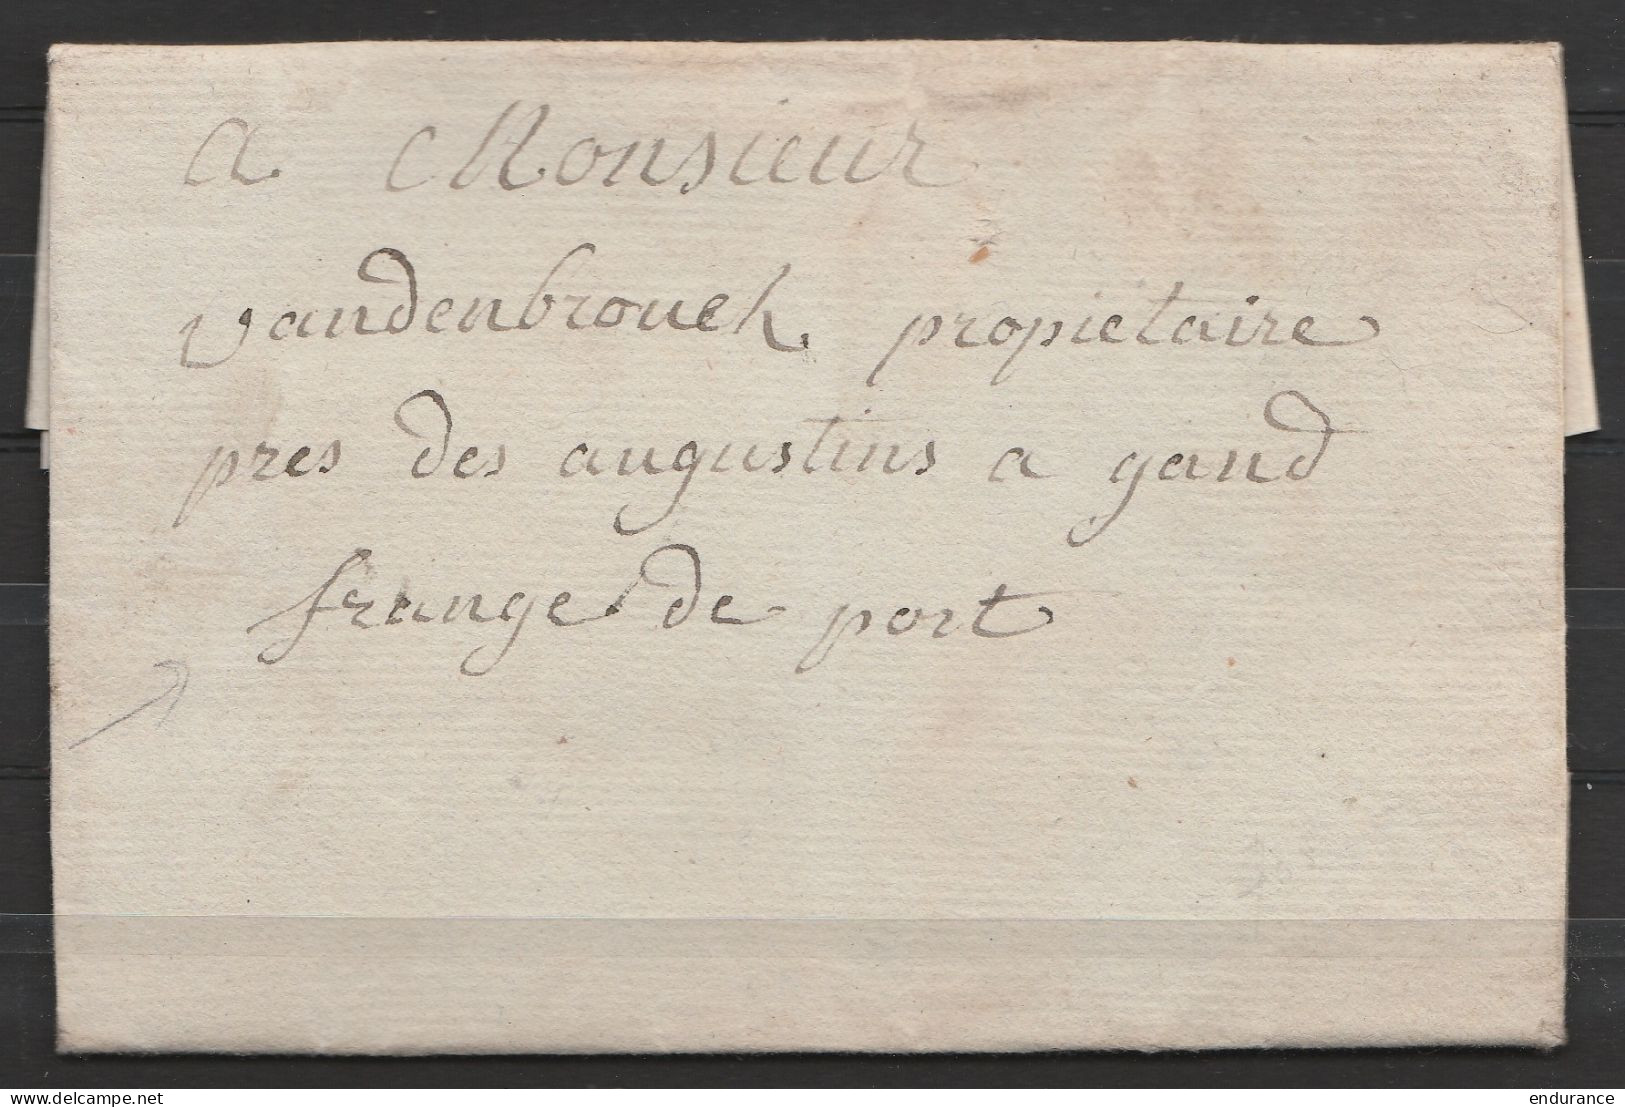 a Monsieur
vandenbrouck propiétaire
pres des augustins a gand
frange de port
delcampe.net
endurance